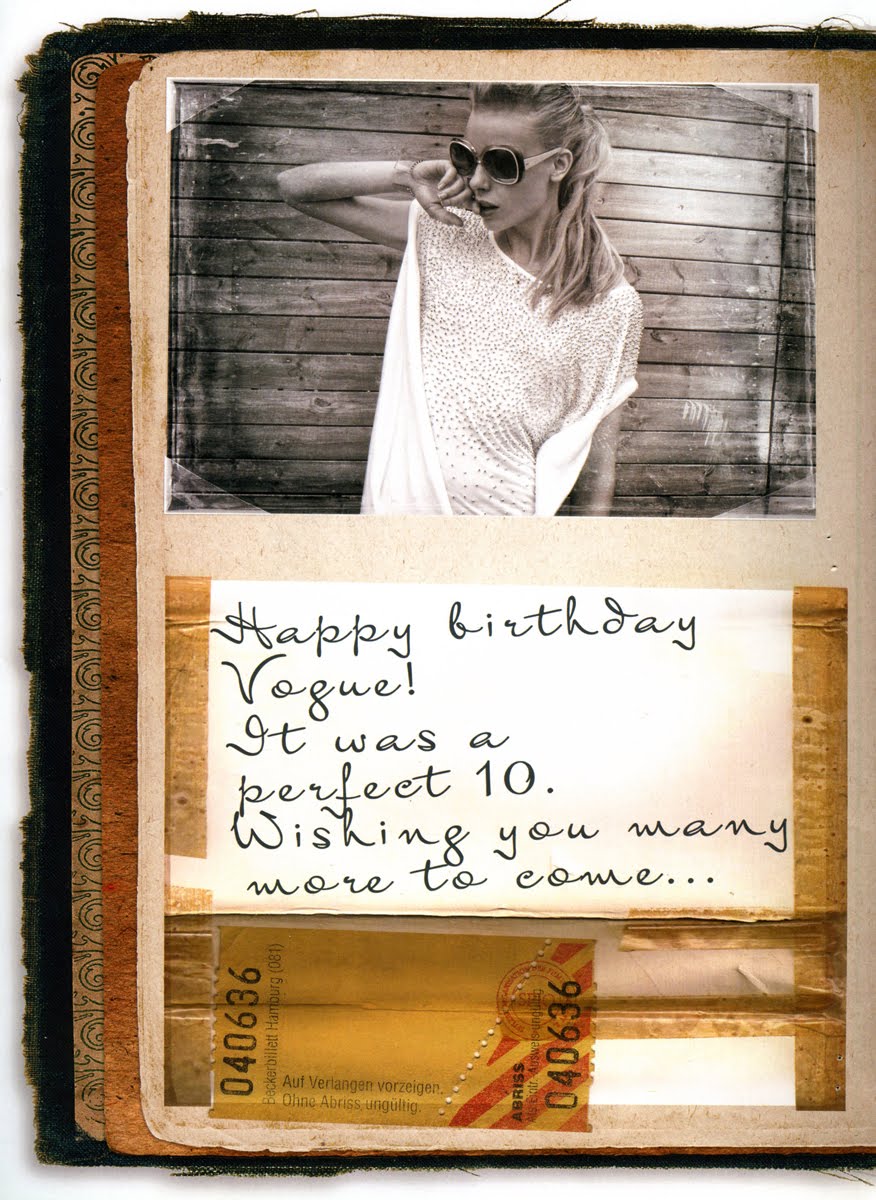 Happy birthday
Vogue!
It was a
perfect 10.
Wishing you many
more to come...
040636
Beckerbillett Hamburg (081)
Auf Verlangen vorzeigen.
Ohne Abriss ungültig.
ABRISS
040636